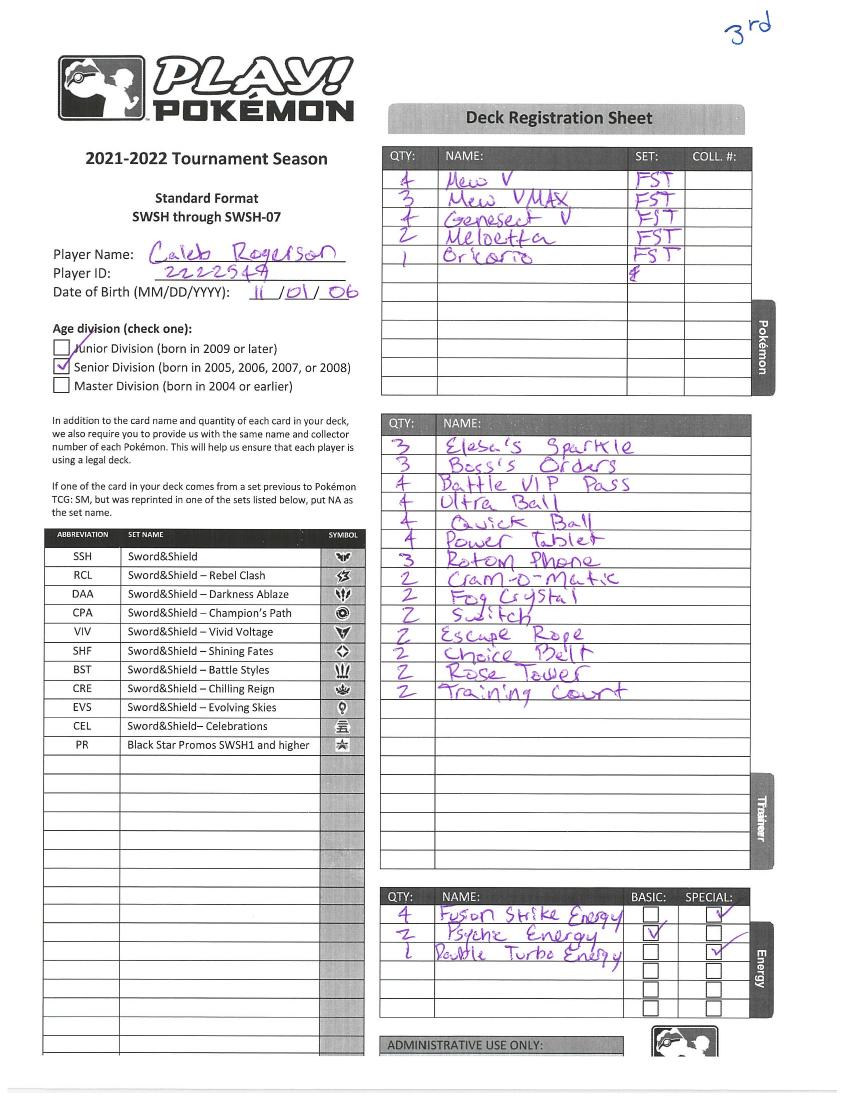 3rd
PLAY!
POKÉMON
2021-2022 Tournament Season
Standard Format
SWSH through SWSH-07
Player Name: Caleb Rogerson
Player ID: 2222549
Date of Birth (MM/DD/YYYY): 11 / 01 / 06
Age division (check one):
Junior Division (born in 2009 or later)
Senior Division (born in 2005, 2006, 2007, or 2008)
Master Division (born in 2004 or earlier)
In addition to the card name and quantity of each card in your deck,
we also require you to provide us with the same name and collector
number of each Pokémon. This will help us ensure that each player is
using a legal deck.
If one of the card in your deck comes from a set previous to Pokémon
TCG: SM, but was reprinted in one of the sets listed below, put NA as
the set name.
ABBREVIATION SET NAME SYMBOL
SSH Sword&Shield
RCL Sword&Shield – Rebel Clash
DAA Sword&Shield – Darkness Ablaze
CPA Sword&Shield – Champion's Path
VIV Sword&Shield – Vivid Voltage
SHF Sword&Shield – Shining Fates
BST Sword&Shield – Battle Styles
CRE Sword&Shield – Chilling Reign
EVS Sword&Shield – Evolving Skies
CEL Sword&Shield– Celebrations
PR Black Star Promos SWSH1 and higher
Deck Registration Sheet
QTY: NAME: SET: COLL. #:
4 Mew V FST
3 Mew VMAX FST
4 Genesect V FST
2 Meloetta FST
1 Oricorio FST
Pokémon
QTY: NAME:
3 Elesa's Sparkle
3 Boss's Orders
4 Battle VIP Pass
4 Ultra Ball
4 Quick Ball
4 Power Tablet
3 Rotom Phone
2 Cram-o-matic
2 Fog Crystal
2 Switch
2 Escape Rope
2 Choice Belt
2 Rose Tower
2 Training Court
Trainer
QTY: NAME: BASIC: SPECIAL:
4 Fuson Strike Energy
2 Psychic Energy
1 Double Turbo Energy
Energy
ADMINISTRATIVE USE ONLY: